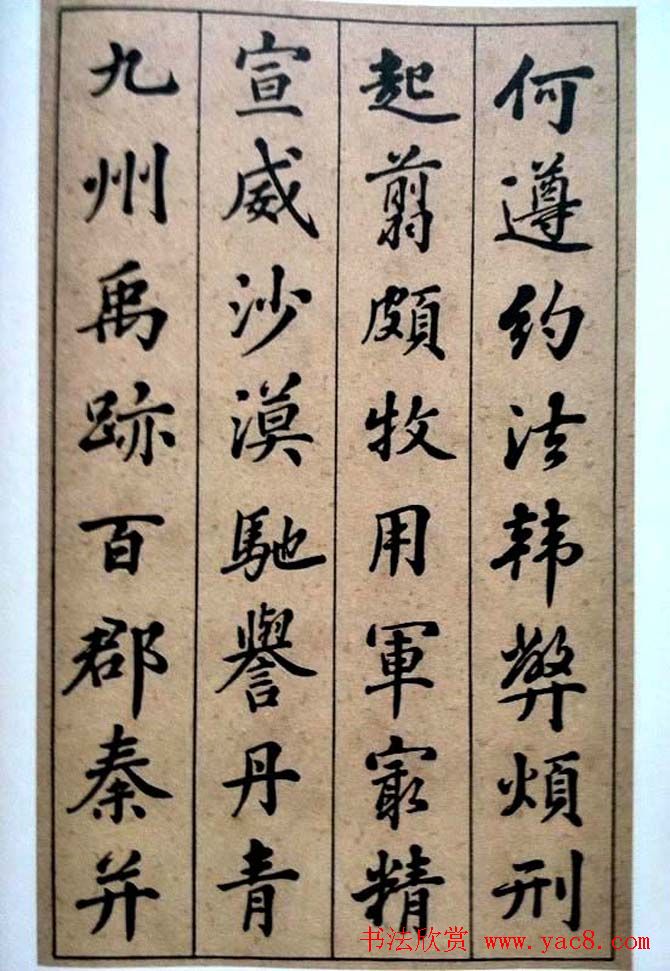 何遵約法韩弊煩刑
起翦頗牧用軍㝡精
宣威沙漠馳譽丹青
九州禹跡百郡秦并
书法欣赏 www.yac8.com